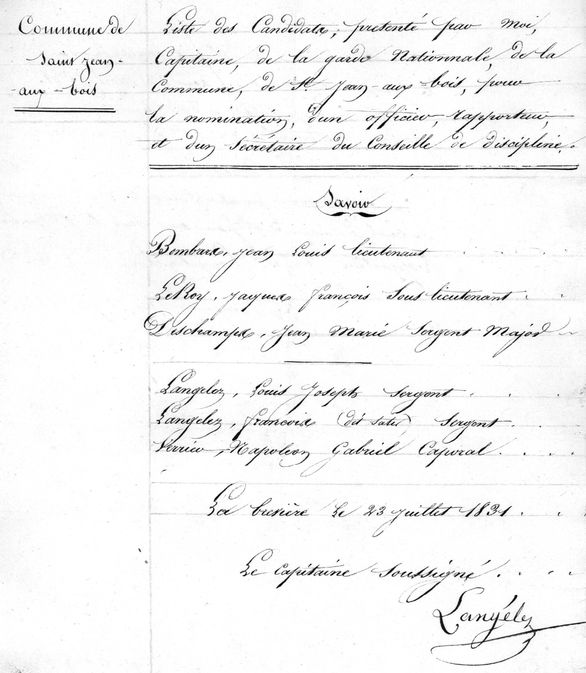 Commune de
Saint Jean-
aux-bois
Liste des Candidats, presenté par Moi,
Capitaine, de la garde Nationnale, de la
Commune, de St. Jean-aux-bois, pour
la nomination, d'un officier, rapporteur,
et d'un Sécrétaire du Conseille de discipline.
Savoir
Bombart, Jean Louis lieutenant
LeRoy, Jacques françois Sous-lieutenant
Deschamps, Jean Marié Sergent Major
Langelez, Louis Joseph Sergent
Langelez, francois (dit Sater) Sergent
Verrier, Napoleon Gabriel Caporal
La breviere Le 23 Juillet 1831
Le Capitaine Soussigné
Langélez